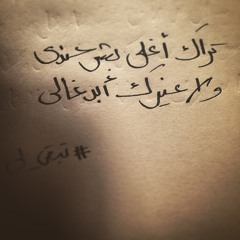 تراك أغلى بشر عندي
ولا غيرك أبد غالي
#تبقى_لي